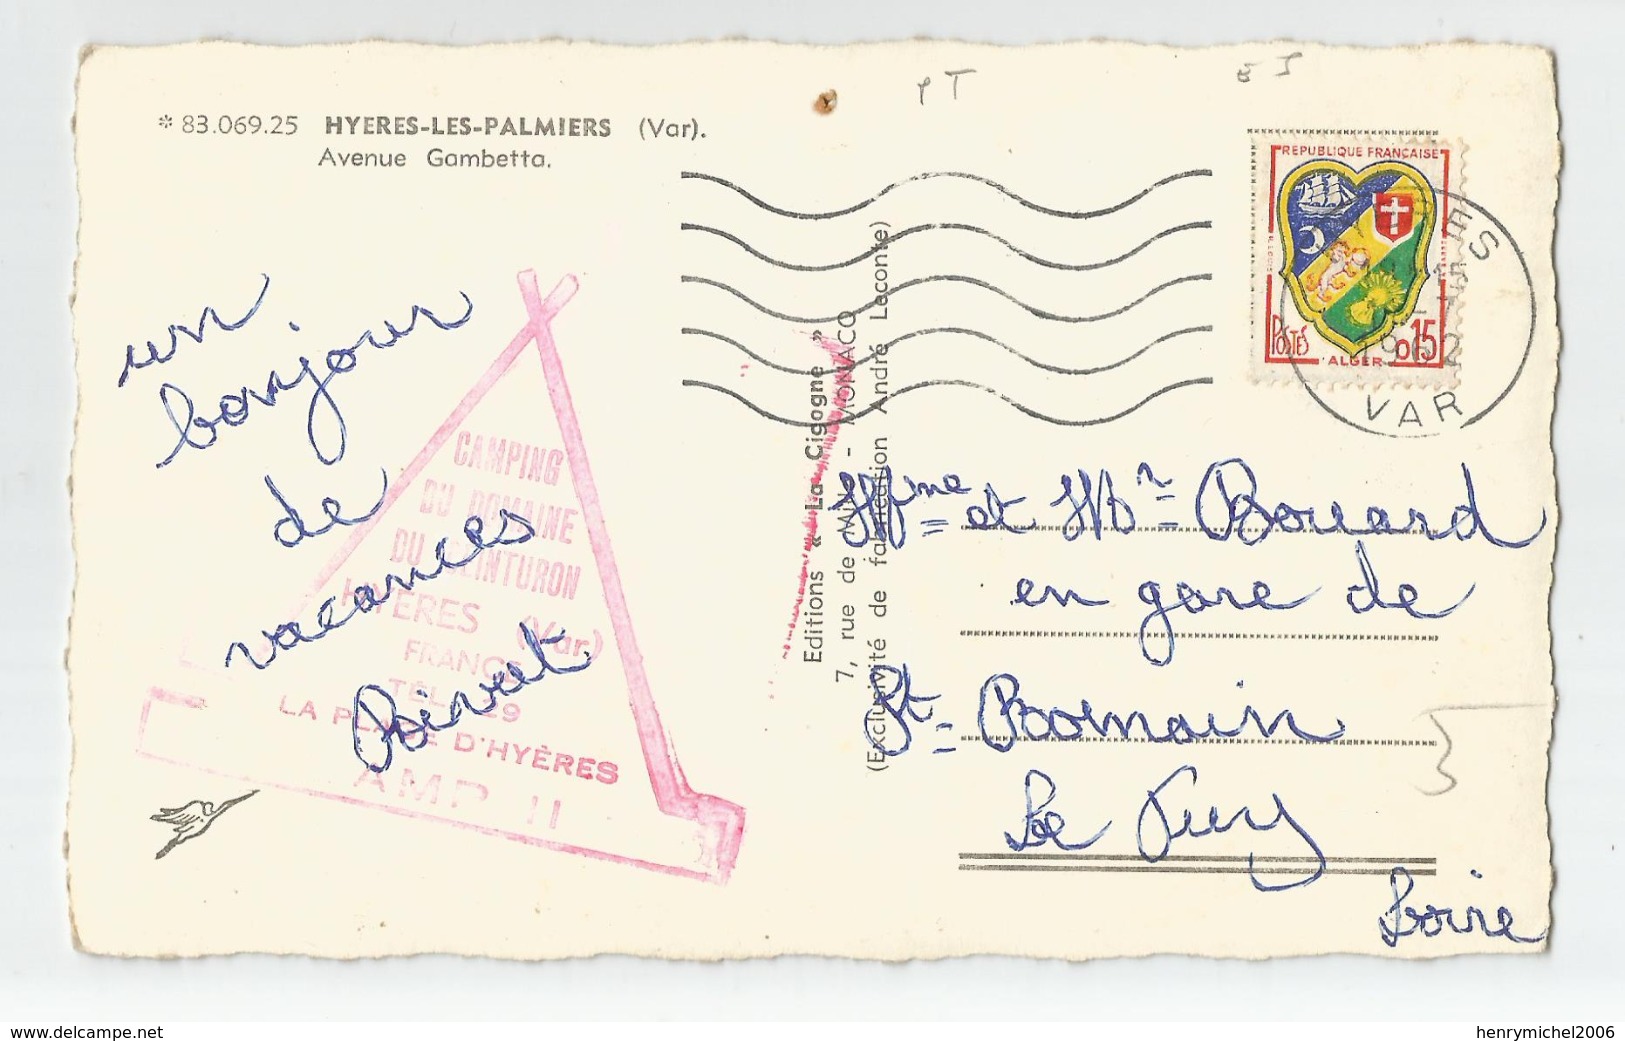 * 83.069.25 HYERES-LES-PALMIERS (Var).
Avenue Gambetta.
un
bonjour
de
vacances
CAMPING
DU DOMAINE
DU CEINTURON
HYÈRES (Var)
FRANCE
LA PLAGE D'HYÈRES
Editions « La Cigogne »
7, rue de Millo - MONACO
(Exclusivité de fabrication André Leconte)
REPUBLIQUE FRANÇAISE
POSTES
ALGER
0,15
VAR
Mme et Mr Bouard
en gare de
St Romain
Le Puy
Loire
www.delcampe.net
henrymichel2006